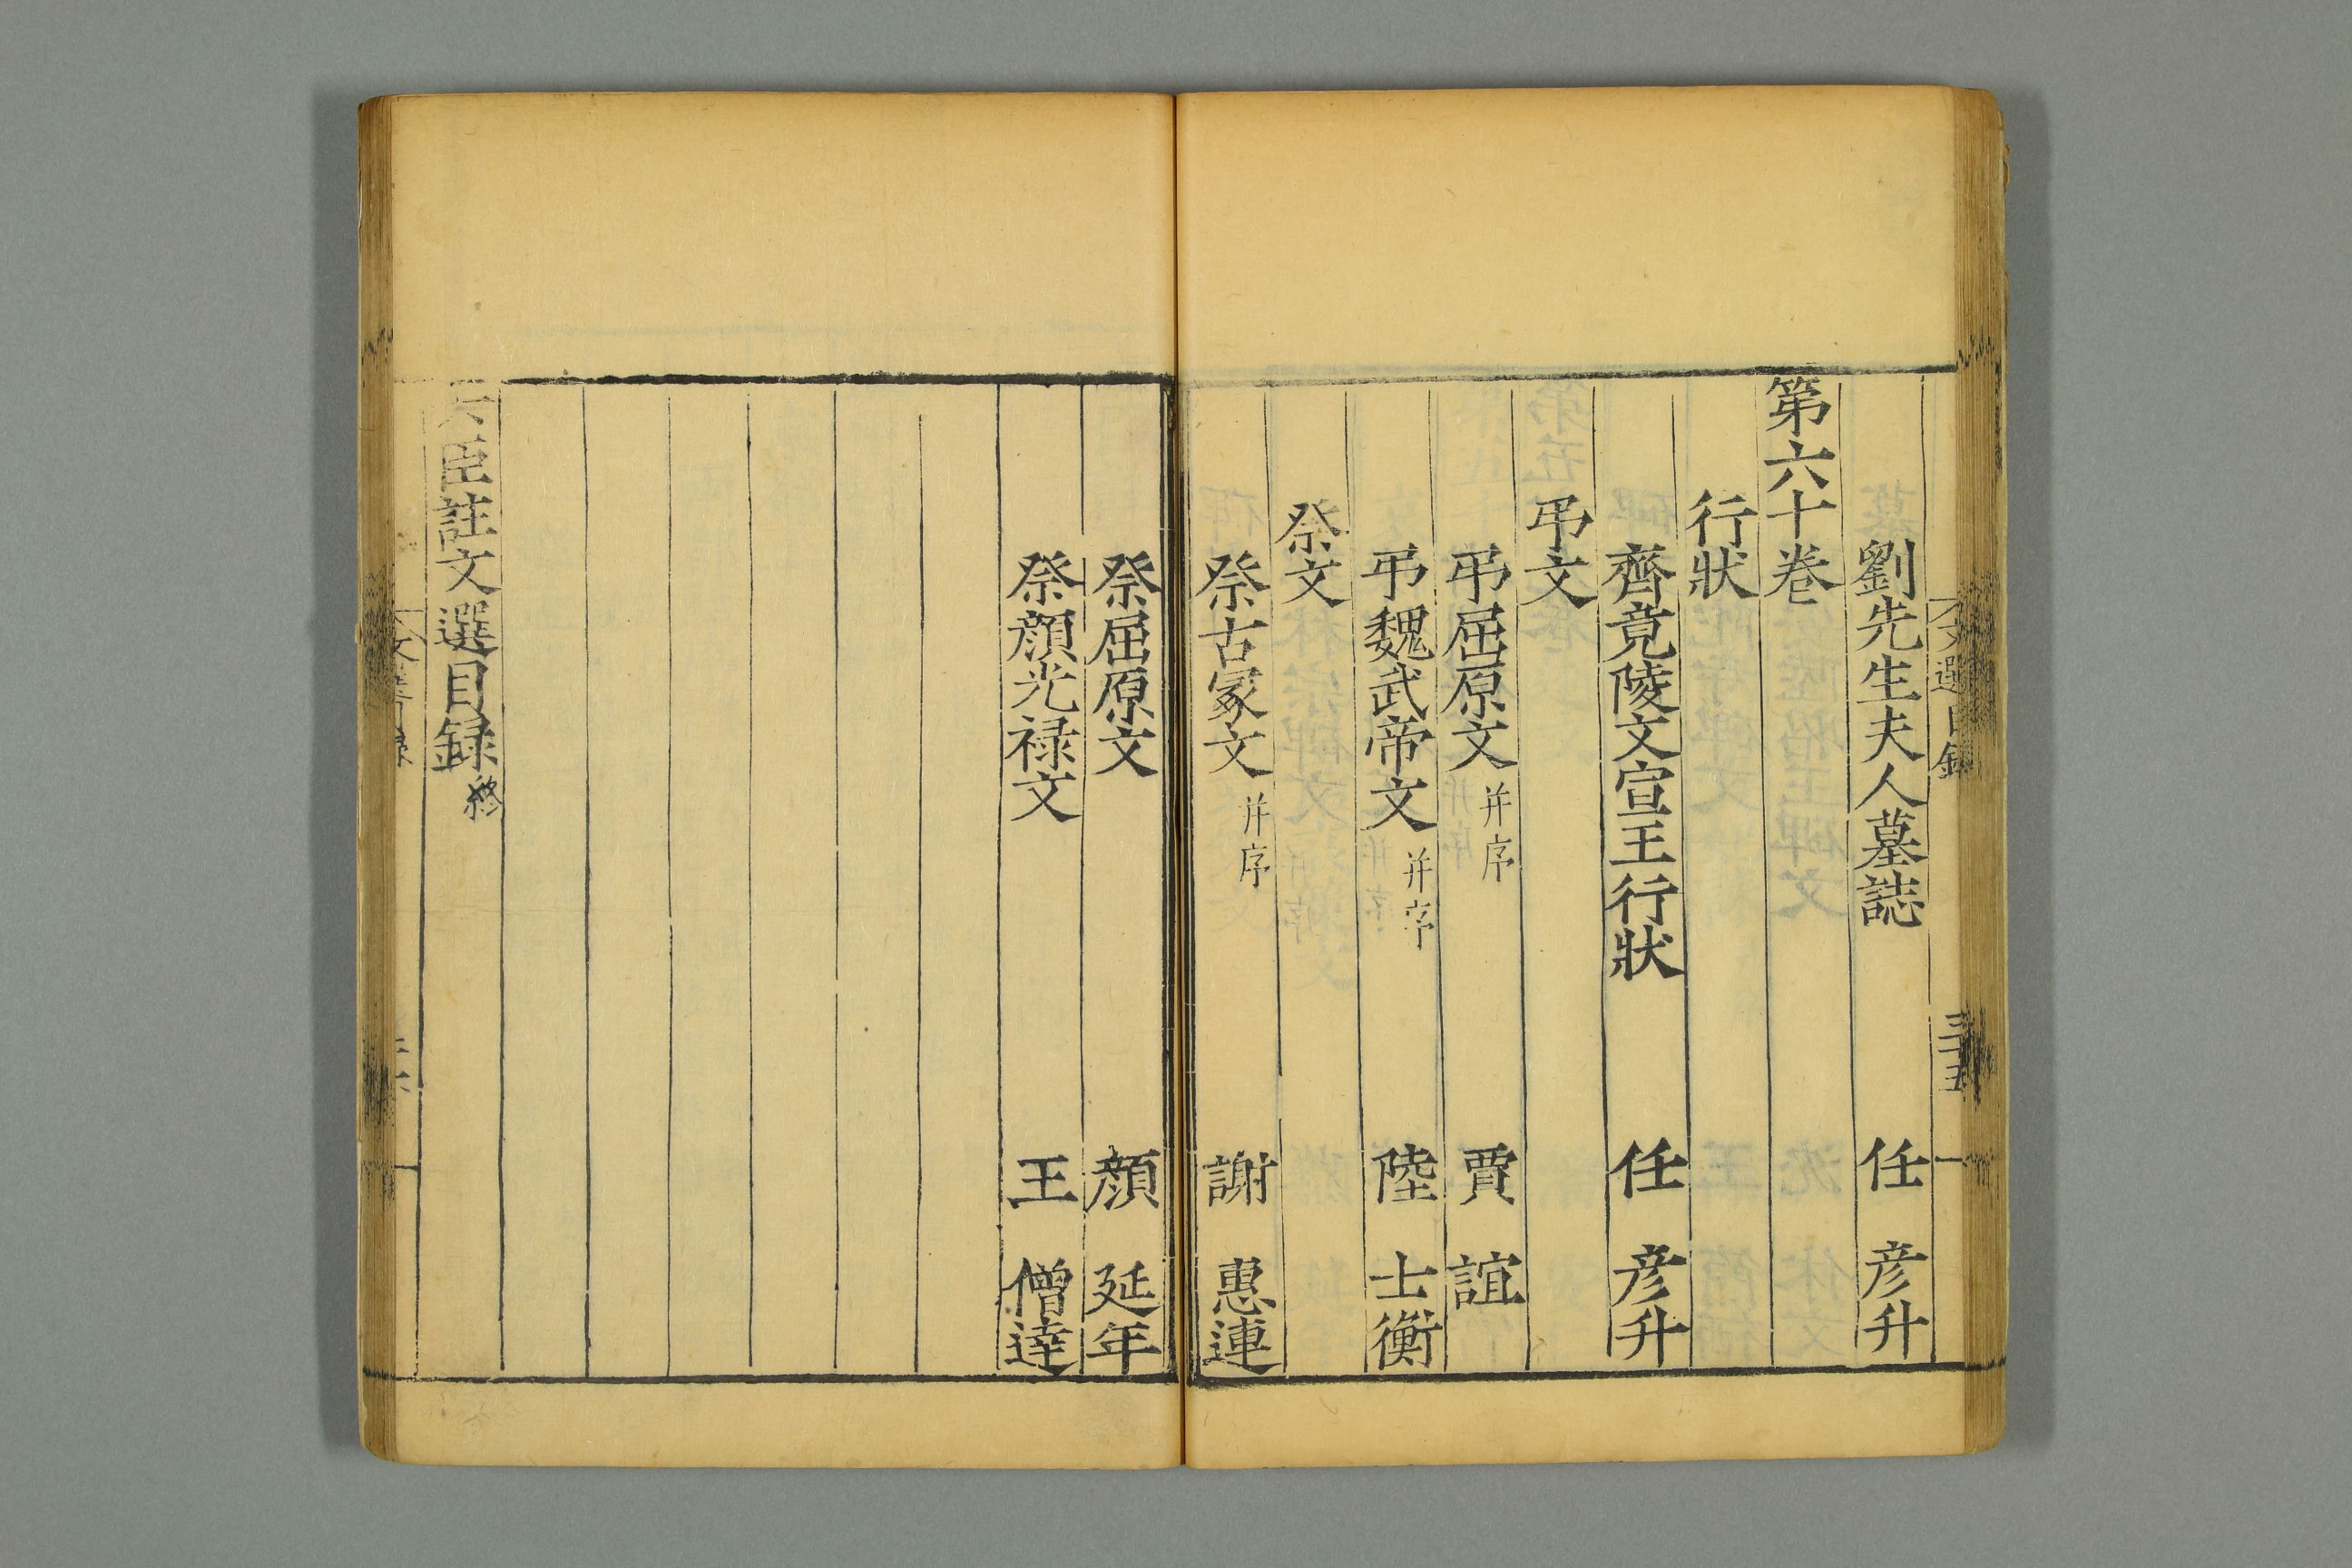 文選目録
三十五
劉先生夫人墓誌 任 彦升
第六十卷
行狀
齊竟陵文宣王行狀 任 彦升
弔文
弔屈原文 并序 賈 誼
弔魏武帝文 并序 陸 士衡
祭文
祭古冢文 并序 謝 惠連
祭屈原文 顔 延年
祭顔光禄文 王 僧達
六臣註文選目録 終